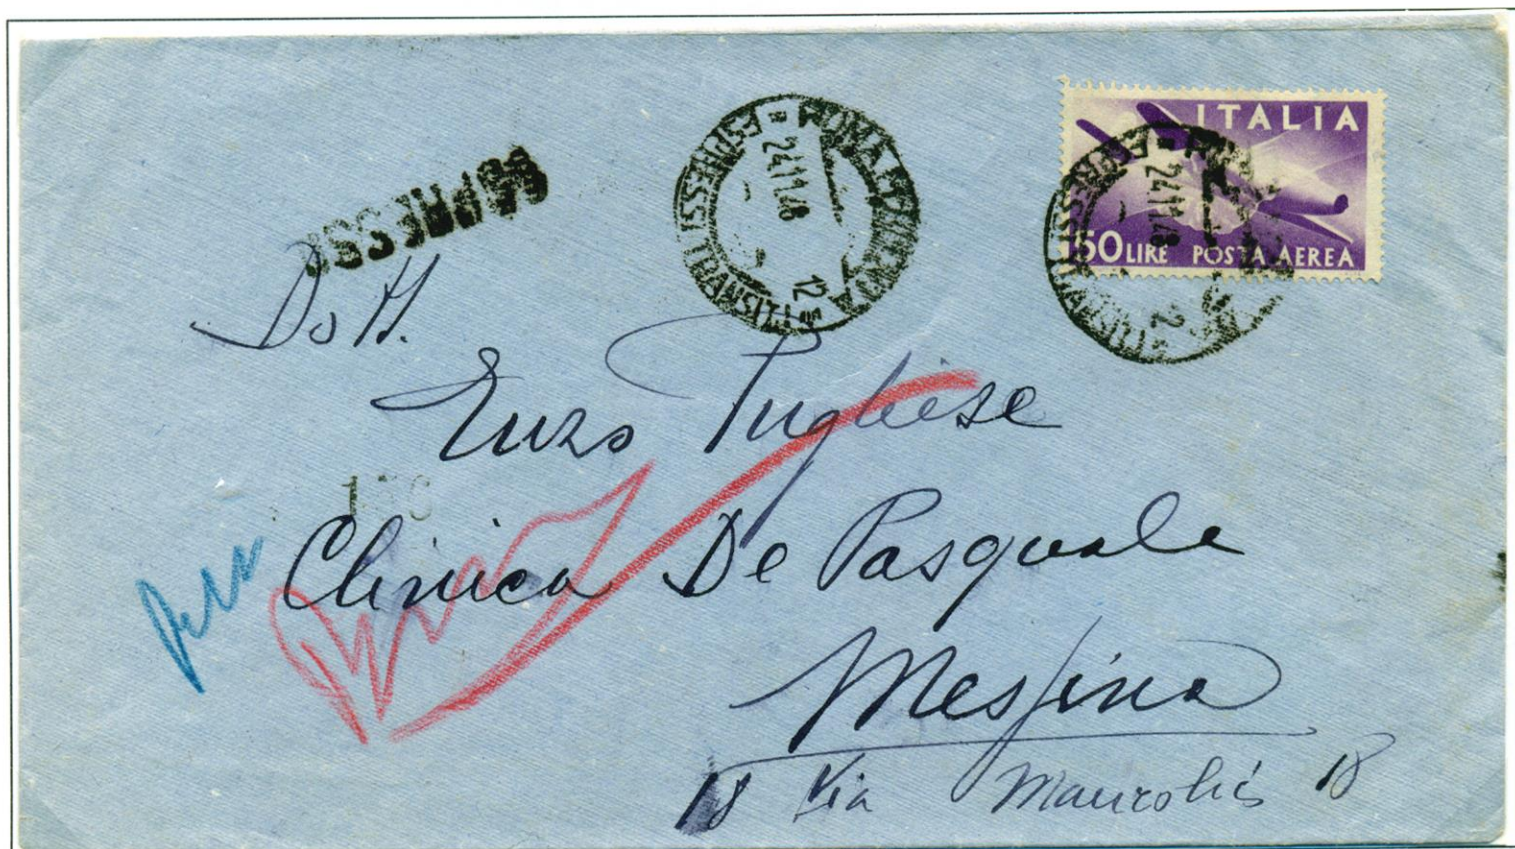 ESPRESSO
ROMA FERROVIA
24.11.48
12
ESPRESSI TRANSITI
ITALIA
50 LIRE POSTA AEREA
24.11.48
Dott.
Enzo Pugliese
Clinica De Pasquale
Messina
18 Via Maurolic 18